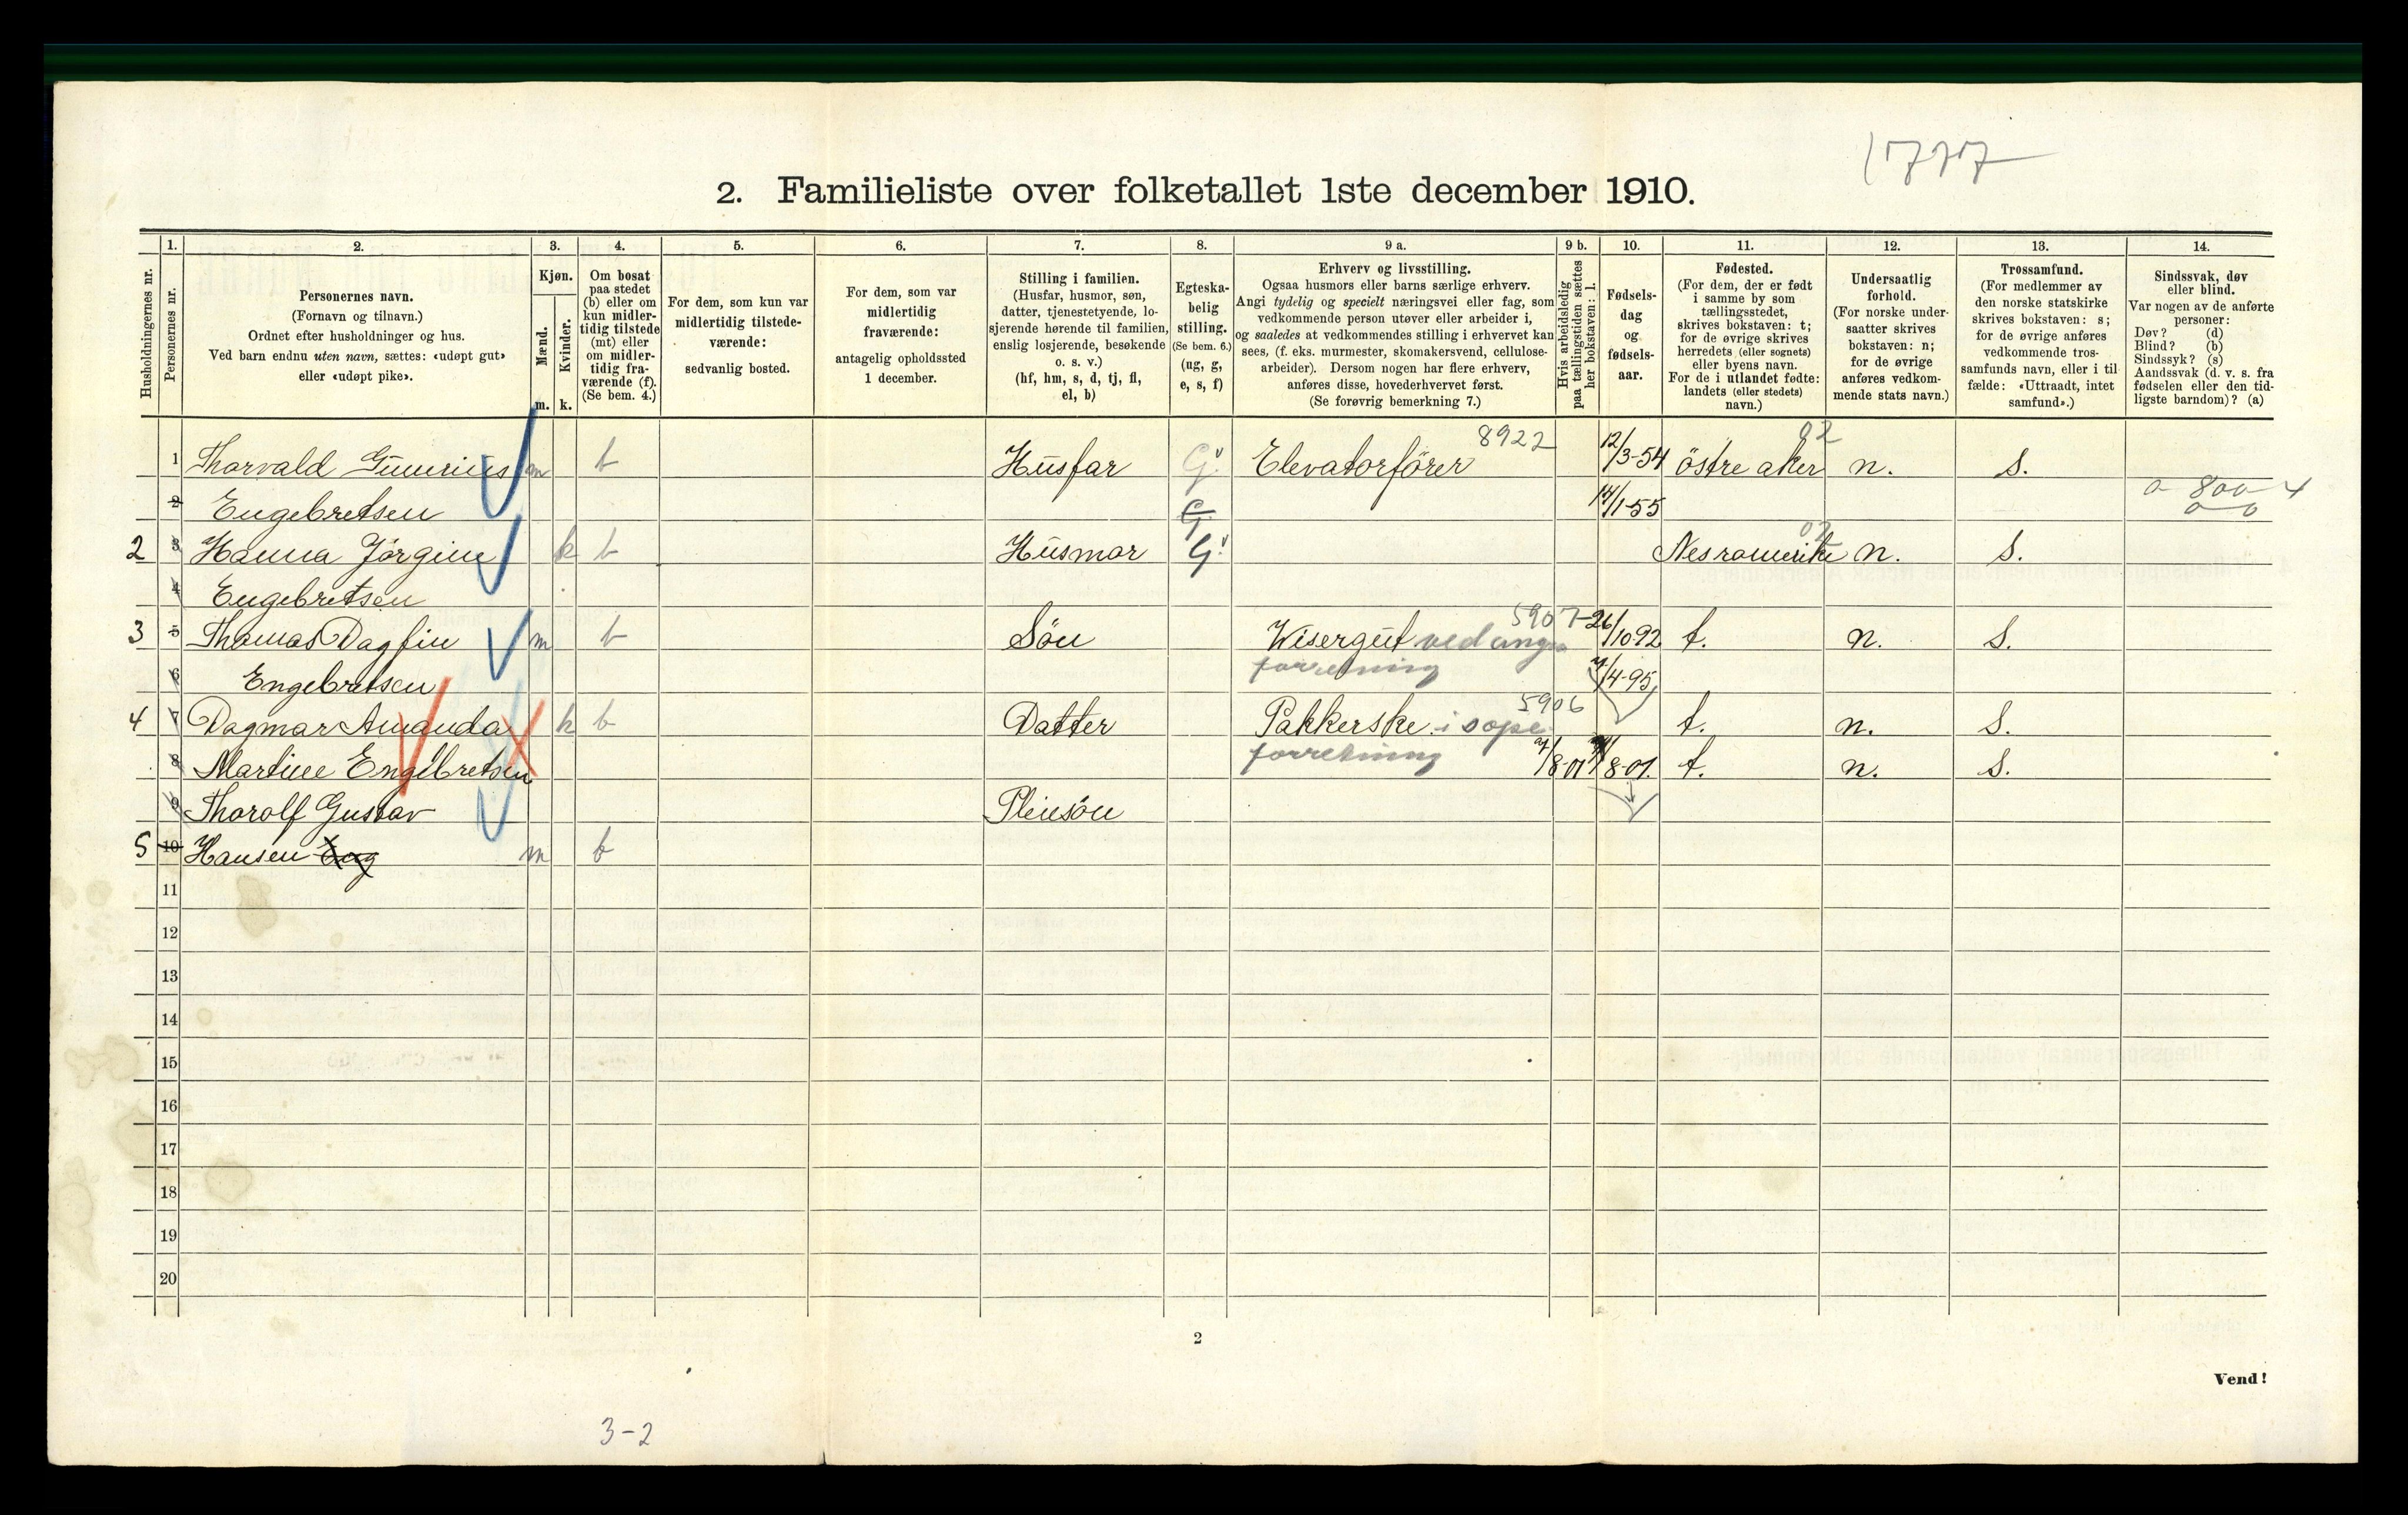 1777
2. Familieliste over folketallet 1ste december 1910.
Husholdningernes nr.
1. Personernes nr.
2. Personernes navn.
(Fornavn og tilnavn.)
Ordnet efter husholdninger og hus.
Ved barn endnu uten navn, sættes: «udøpt gut»
eller «udøpt pike».
3. Kjøn.
Mænd. m.
Kvinder. k.
4. Om bosat
paa stedet
(b) eller om
kun midler-
tidig tilstede
(mt) eller
om midler-
tidig fra-
værende (f).
(Se bem. 4.)
5. For dem, som kun var
midlertidig tilstede-
værende:
sedvanlig bosted.
6. For dem, som var
midlertidig
fraværende:
antagelig opholdssted
1 december.
7. Stilling i familien.
(Husfar, husmor, søn,
datter, tjenestetyende, lo-
sjerende hørende til familien,
enslig losjerende, besøkende
o. s. v.)
(hf, hm, s, d, tj, fl,
el, b)
8. Egteska-
belig
stilling.
(Se bem. 6.)
(ug, g,
e, s, f)
9 a. Erhverv og livsstilling.
Ogsaa husmors eller barns særlige erhverv.
Angi tydelig og specielt næringsvei eller fag, som
vedkommende person utøver eller arbeider i,
og saaledes at vedkommendes stilling i erhvervet kan
sees, (f. eks. murmester, skomakersvend, cellulose-
arbeider). Dersom nogen har flere erhverv,
anføres disse, hovederhvervet først.
(Se forøvrig bemerkning 7.)
9 b. Hvis arbeidsledig
paa tællingstiden sættes
her bokstaven: l.
10. Fødsels-
dag
og
fødsels-
aar.
11. Fødested.
(For dem, der er født
i samme by som
tællingsstedet,
skrives bokstaven: t;
for de øvrige skrives
herredets (eller sognets)
eller byens navn.
For de i utlandet fødte:
landets (eller stedets)
navn.)
12. Undersaatlig
forhold.
(For norske under-
saatter skrives
bokstaven: n;
for de øvrige
anføres vedkom-
mende stats navn.)
13. Trossamfund.
(For medlemmer av
den norske statskirke
skrives bokstaven: s;
for de øvrige anføres
vedkommende tros-
samfunds navn, eller i til-
fælde: «Uttraadt, intet
samfund».)
14. Sindssvak, døv
eller blind.
Var nogen av de anførte
personer:
Døv? (d)
Blind? (b)
Sindssyk? (s)
Aandssvak (d. v. s. fra
fødselen eller den tid-
ligste barndom)? (a)
8922 02
1 Thorvald Gunerius m b Husfar G. Elevatorfører 12/3-54 östre aker n. S.
2 Engebretsen G. 14/1-55 0 800-4
0 0
2 3 Hanna Jörgine k b Husmor G. Nesromerike 02 n. S.
4 Engebretsen
3 5 Thomas Dagfin m b Sön Wisergut ved 5907 26/10 92 t. n. S.
6 Engebretsen forretning 7/4-95
4 7 Dagmar Amanda k b Datter Pakkerske i sope 5906 t. n. S.
8 Martine Engebretsen forretning 7/8 01 8-01. t. n. S.
9 Thorolf Gustav Pleiesön
5 10 Hansen Eng m b
11
12
13
14
15
16
17
18
19
20
2
Vend!
3-2